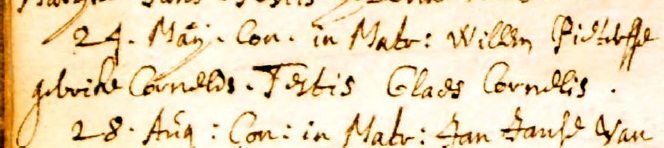 24. Maÿ. Con. in Matr: Willem Pieterse
Cornelds. Testis Claes Cornelis.
28. Aug: Con: in Matr: Jan Janse Van